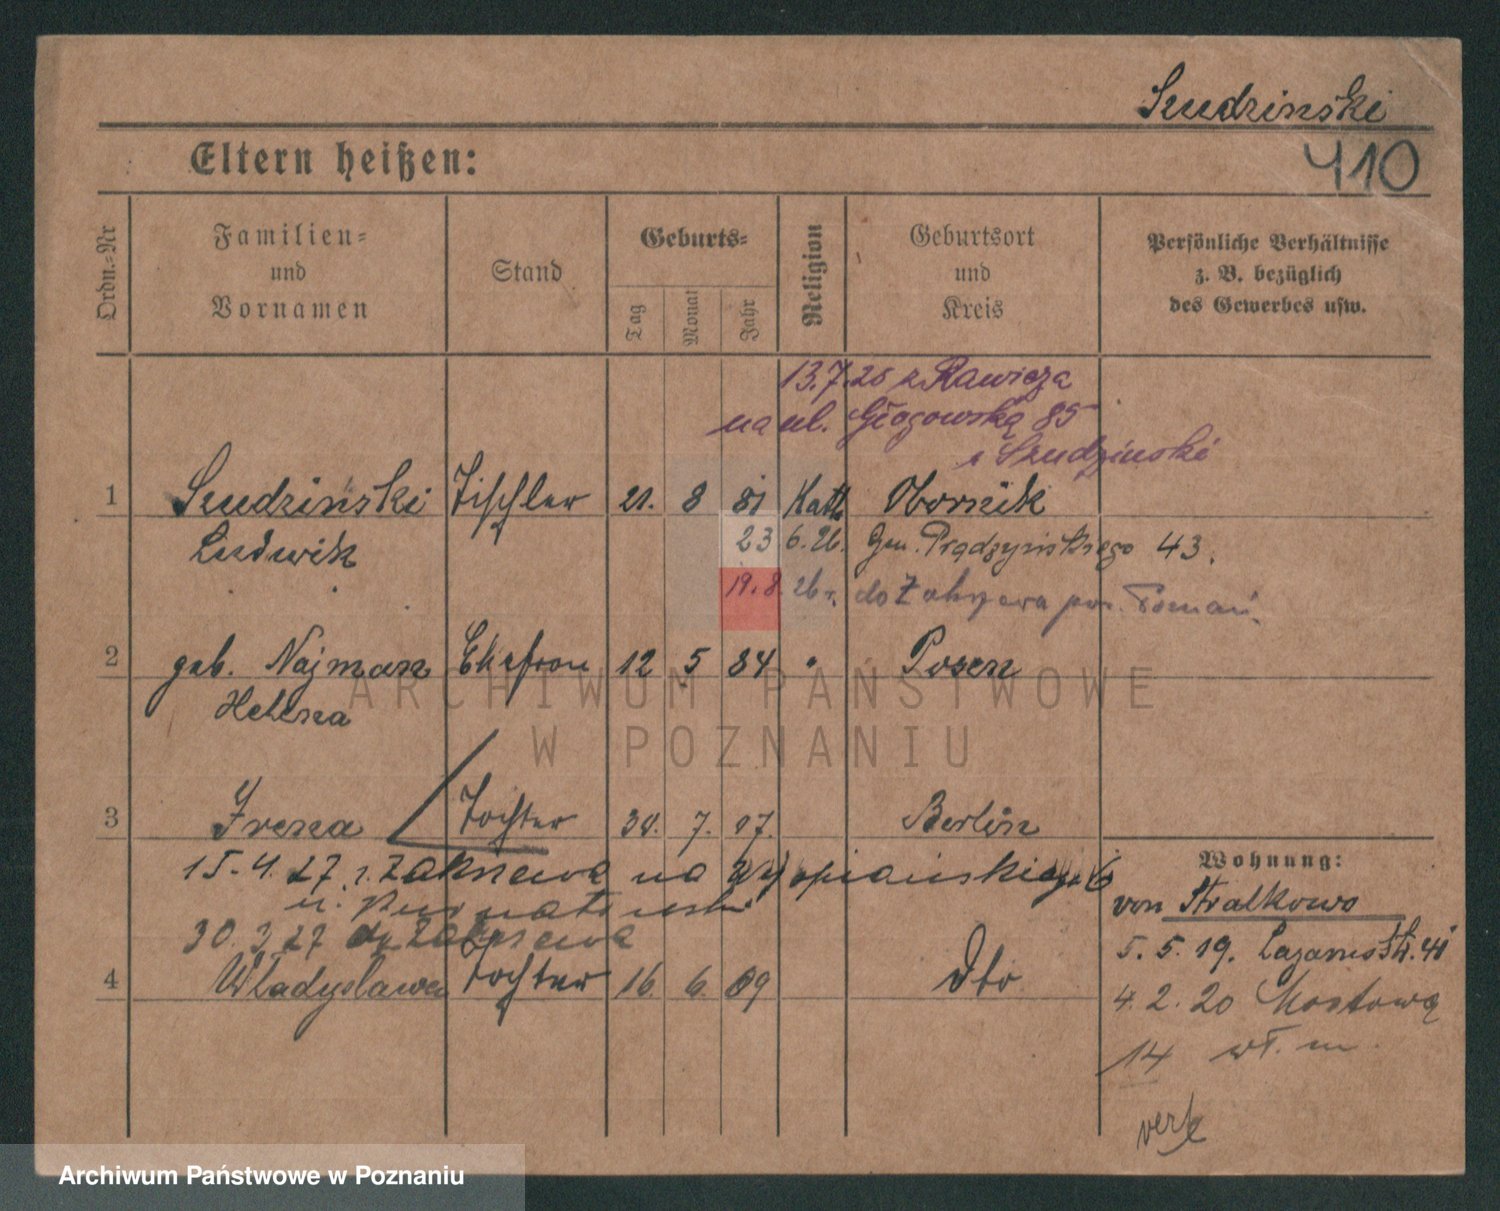 Szudzinski
410
Eltern heißen:
Ordn.-Nr
Familien- und Vornamen
Stand
Geburts-
Tag
Monat
Jahr
Religion
Geburtsort und Kreis
Persönliche Verhältnisse z. B. bezüglich des Gewerbes usw.
13.7.26 z Rawicza
na ul. Głogowską 85
Szudzinski
1 Szudziński Tischler 21. 8 81 Kath Obornik
Ludwik 23 6.26. Gen. Prądzyńskiego 43.
19.8 26 r. do Zakrzewa
2 geb. Najman Ehefrau 12 5 84 " Posen
Helena
ARCHIWUM PAŃSTWOWE
W POZNANIU
3 Irena Tochter 7. 07. Berlin
15.4.27 z Zakrzewa na 6
30.3.27 do Zakrzewa
4 Władysława Tochter 16. 6. 09 Dto
Wohnung:
von Stralkowo
5.5.19. Lazarusstr. 41
4.2.20 Mostowa
14 wł. m.
Archiwum Państwowe w Poznaniu